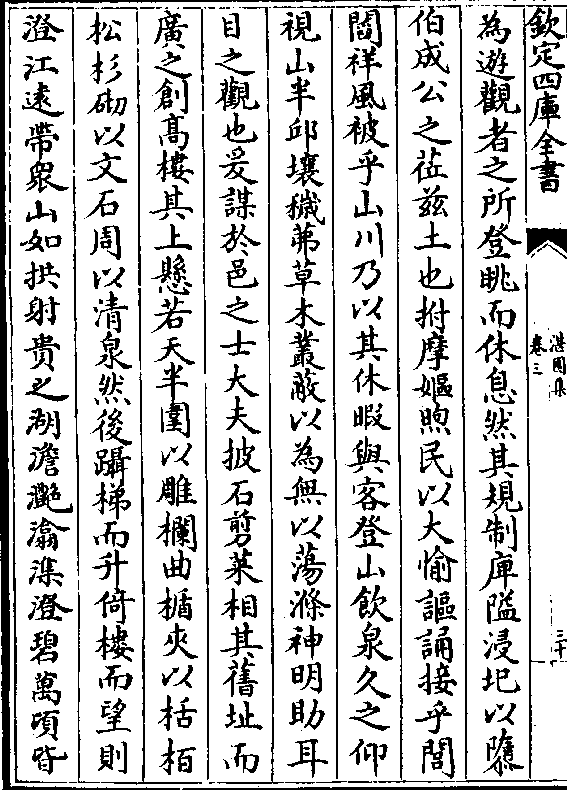 欽定四庫全書
湛園集
卷三
三十
為遊觀者之所登眺而休息然其規制庳隘浸圯以隳
伯成公之莅兹土也拊摩嫗煦民以大愉謳誦接乎閭
閻祥風被乎山川乃以其休暇與客登山飲泉久之仰
視山半邱壤穢茀草木叢蔽以為無以蕩滌神明助耳
目之觀也爰謀於邑之士大夫披石剪萊相其舊址而
廣之創高樓其上懸若天半圍以雕欄曲楯夾以栝栢
松杉砌以文石周以清泉然後躡梯而升倚樓而望則
澄江逺帶衆山如拱射貴之湖澹灩瀹渫澄碧萬頃皆